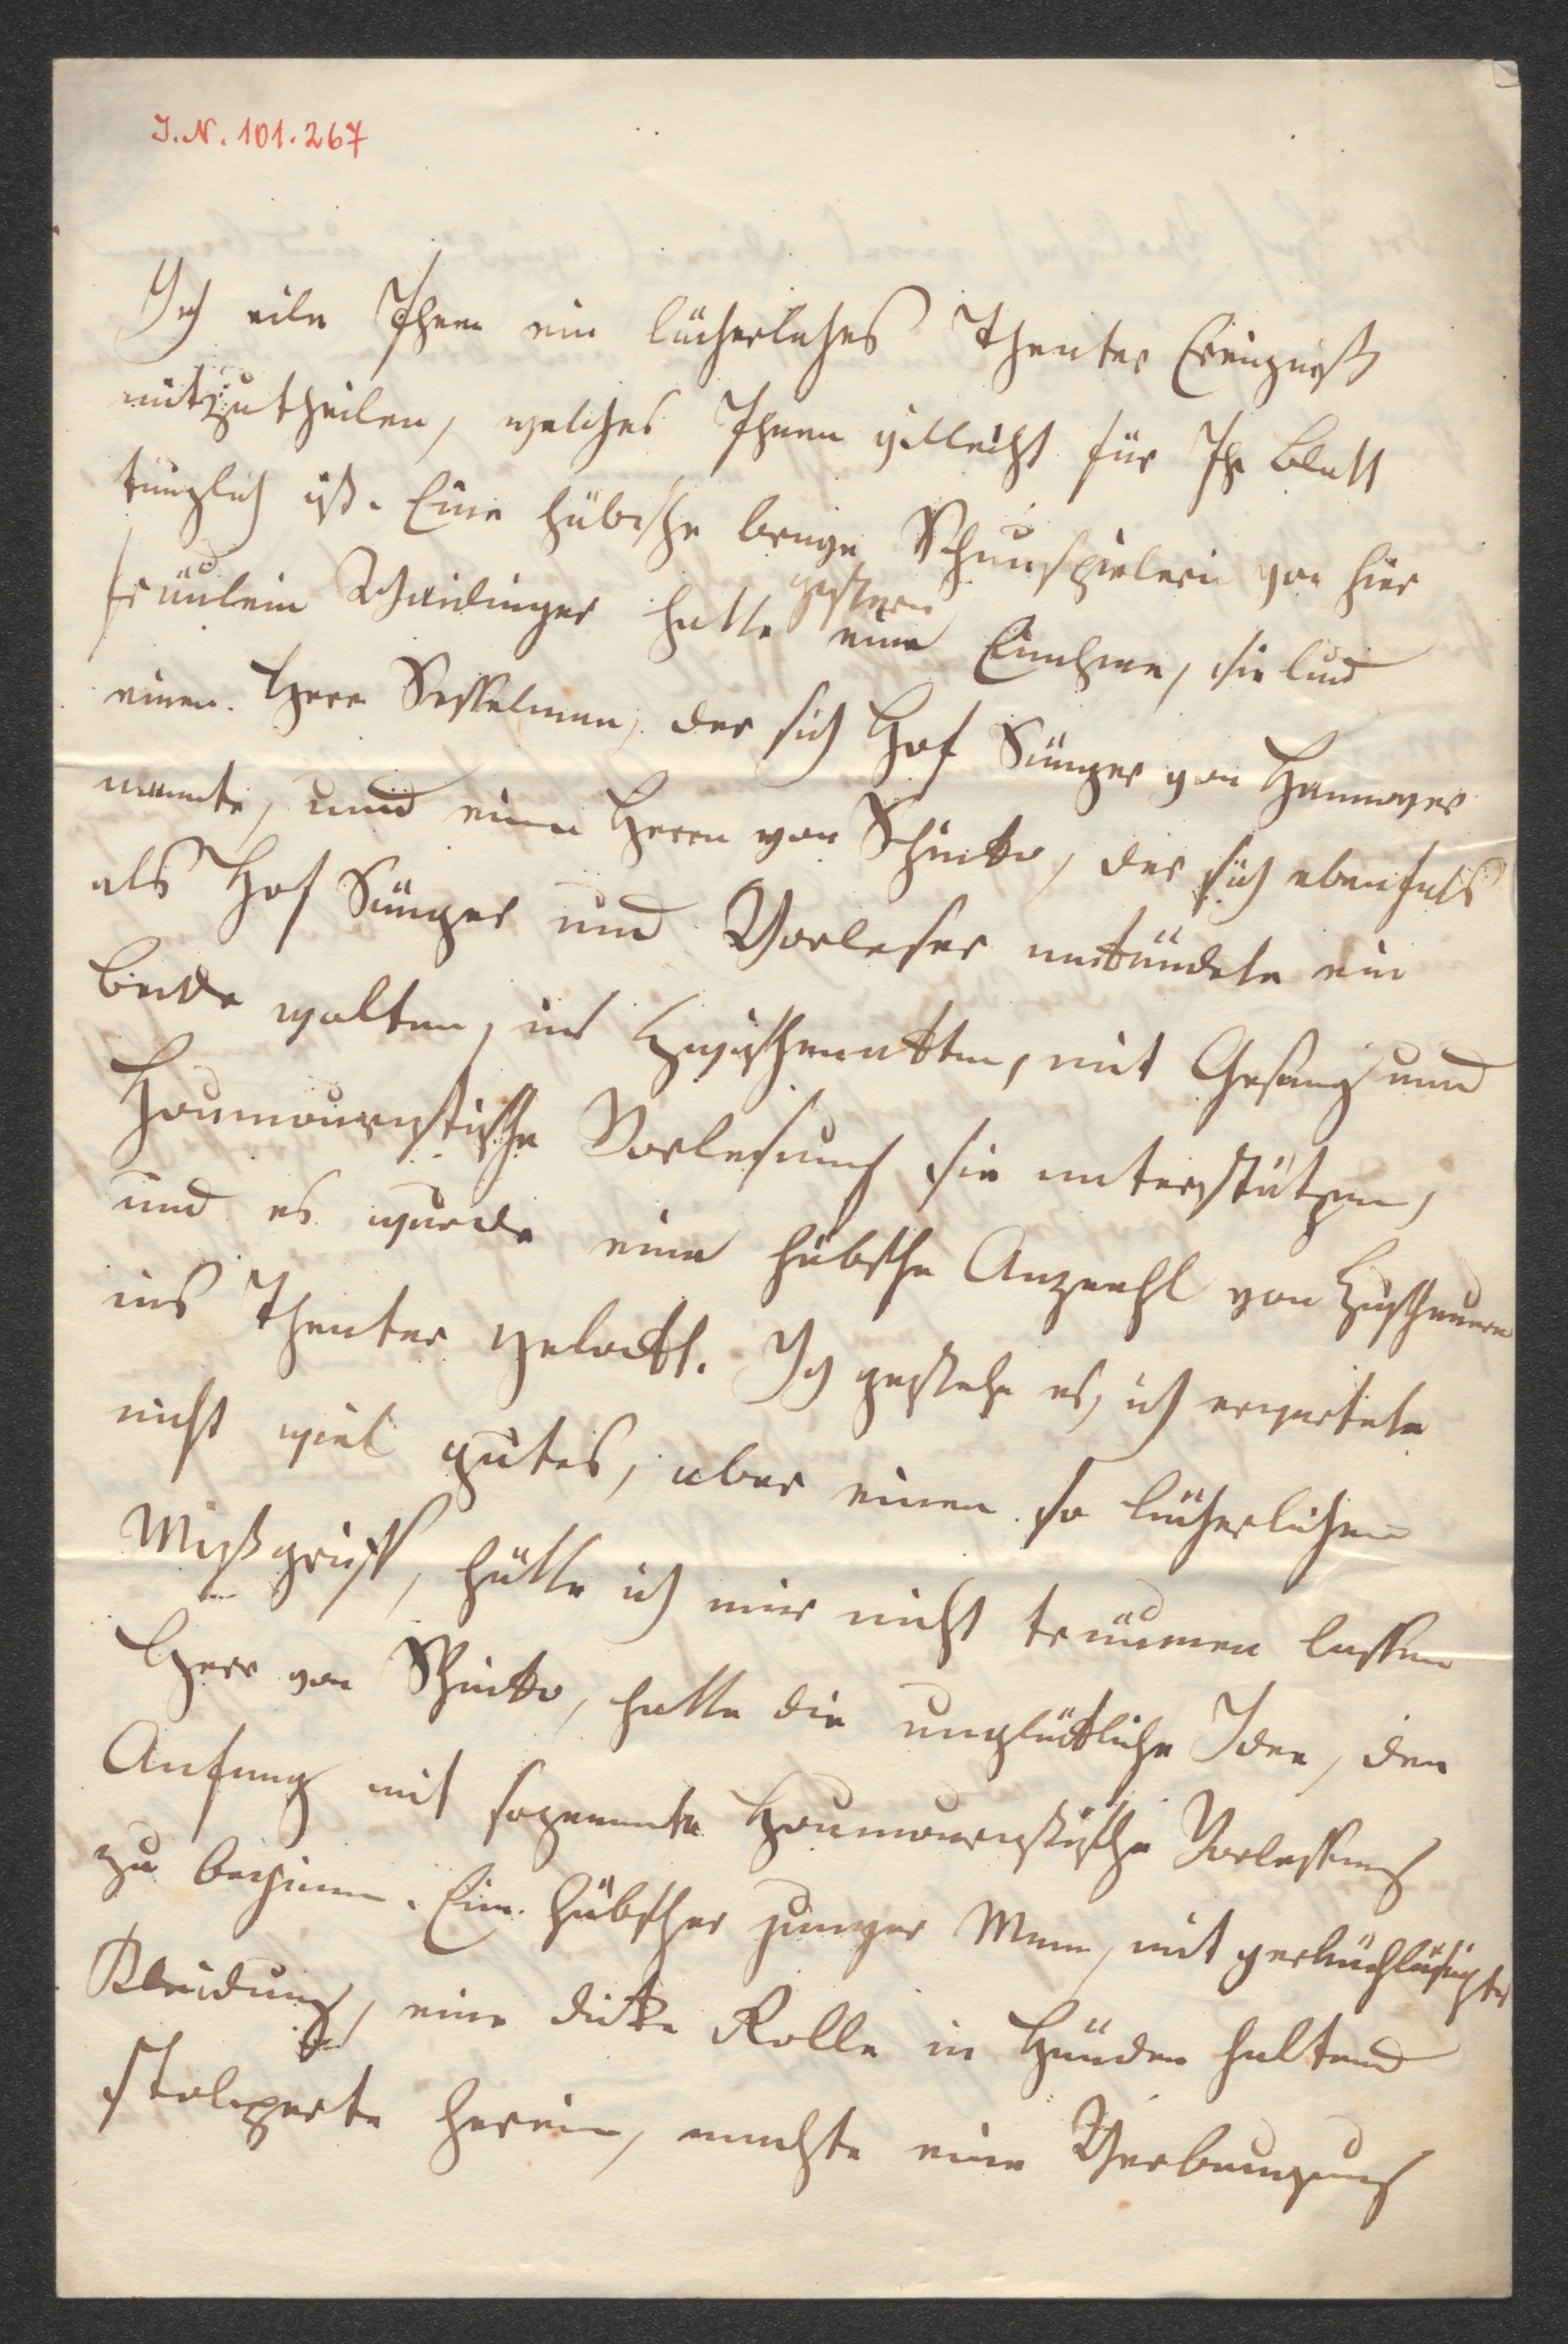 I.N. 101.267
Ich eile Ihnen ein lächerliches Theater Ereigniß
mitzutheilen, welches Ihnen villeicht für Ihr Blatt
tauglich ist. Eine hübsche brave Schauspielerin von hier
fräulein Waidinger hatte gestern eine Einahme, sie lud
einen Herr Sesselmann, der sich Hof Sänger von Hannover
nannte, und einen Herrn von Schinko, der sich ebenfals
als Hof Sänger und Vorleser ankündete ein
beide wolten, in Zwischenakten, mit Gesang und
Houmouristische Vorlesung sie unterstützen,
und es wurde eine hübsche Anzaehl von Zuschauern
ins Theater gelockt. Ich gestehe es, ich erwartete
nicht viel gutes, aber einen so lächerlichen
Mißgriff, hätte ich mir nicht träumen lassen
Herr von Schinko, hatte die unglückliche Idee, den
Anfang mit sogenante Houmouristische Vorlessung
zu beginnen. Ein hübscher junger Mann, mit
Kleidung, eine dicke Rolle in Händen haltend
stolperte herein, machte eine Verbeugung